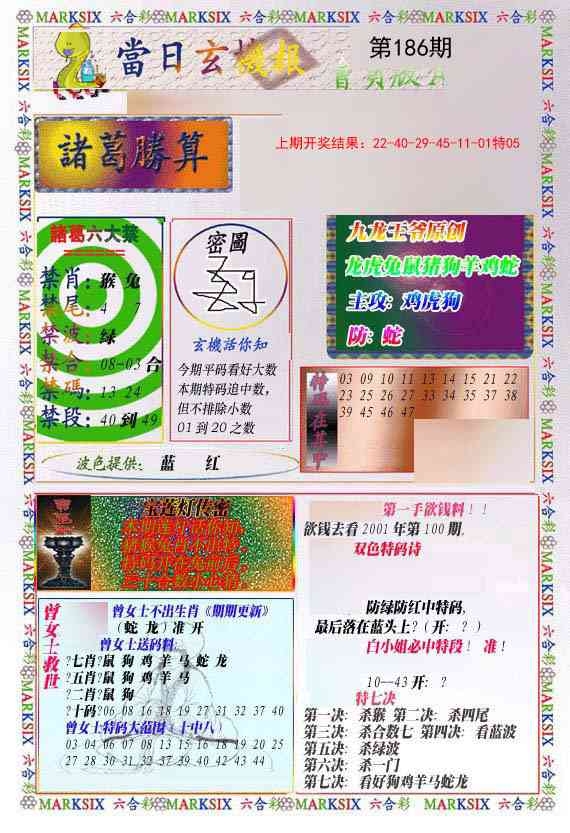 MARKSIX 六合彩 MARKSIX 六合彩 MARKSIX 六合彩 MARKSIX 六合彩
當日玄機报
第186期
諸葛勝算
上期开奖结果：22-40-29-45-11-01特05
諸葛六大禁
禁肖：猴 兔
禁尾：4 7
禁波：绿
禁合：08-03合
禁碼：13 24
禁段：40到49
密圖
玄機活你知
今期平码看好大数
本期特码追中数，
但不排除小数
01到20之数
九龙王爷原创
龙虎兔鼠猪狗羊鸡蛇
主攻：鸡虎狗
防：蛇
特码在其中
03 09 10 11 13 14 15 21 22
23 25 26 27 33 34 35 37 38
39 45 46 47
波色提供： 蓝 红
宝莲灯传密
第一手欲钱料！！
欲钱去看2001年第100期,
双色特码诗
防绿防红中特码，
最后落在蓝头上？（开：？）
白小姐必中特段！ 准！
10--43开：？
特七决
第一决：杀猴 第二决：杀四尾
第三决：杀合数七 第四决：看蓝波
第五决：杀绿波
第六决：杀一门
第七决：看好狗鸡羊马蛇龙
曾女士救世
曾女士不出生肖《期期更新》
（蛇 龙）准 开
曾女士送码料:
?七肖?鼠 狗 鸡 羊 马 蛇 龙
?五肖?鼠 狗 鸡 羊 马
?二肖?鼠 狗
?十码?06 08 16 18 19 27 31 32 37 40
曾女士特码大范围（十中八）
03 04 06 07 08 13 15 16 18 19 20 25
27 28 30 31 32 37 39 40 42 43 44
MARKSIX 六合彩 MARKSIX 六合彩 MARKSIX 六合彩 MARKSIX 六合彩